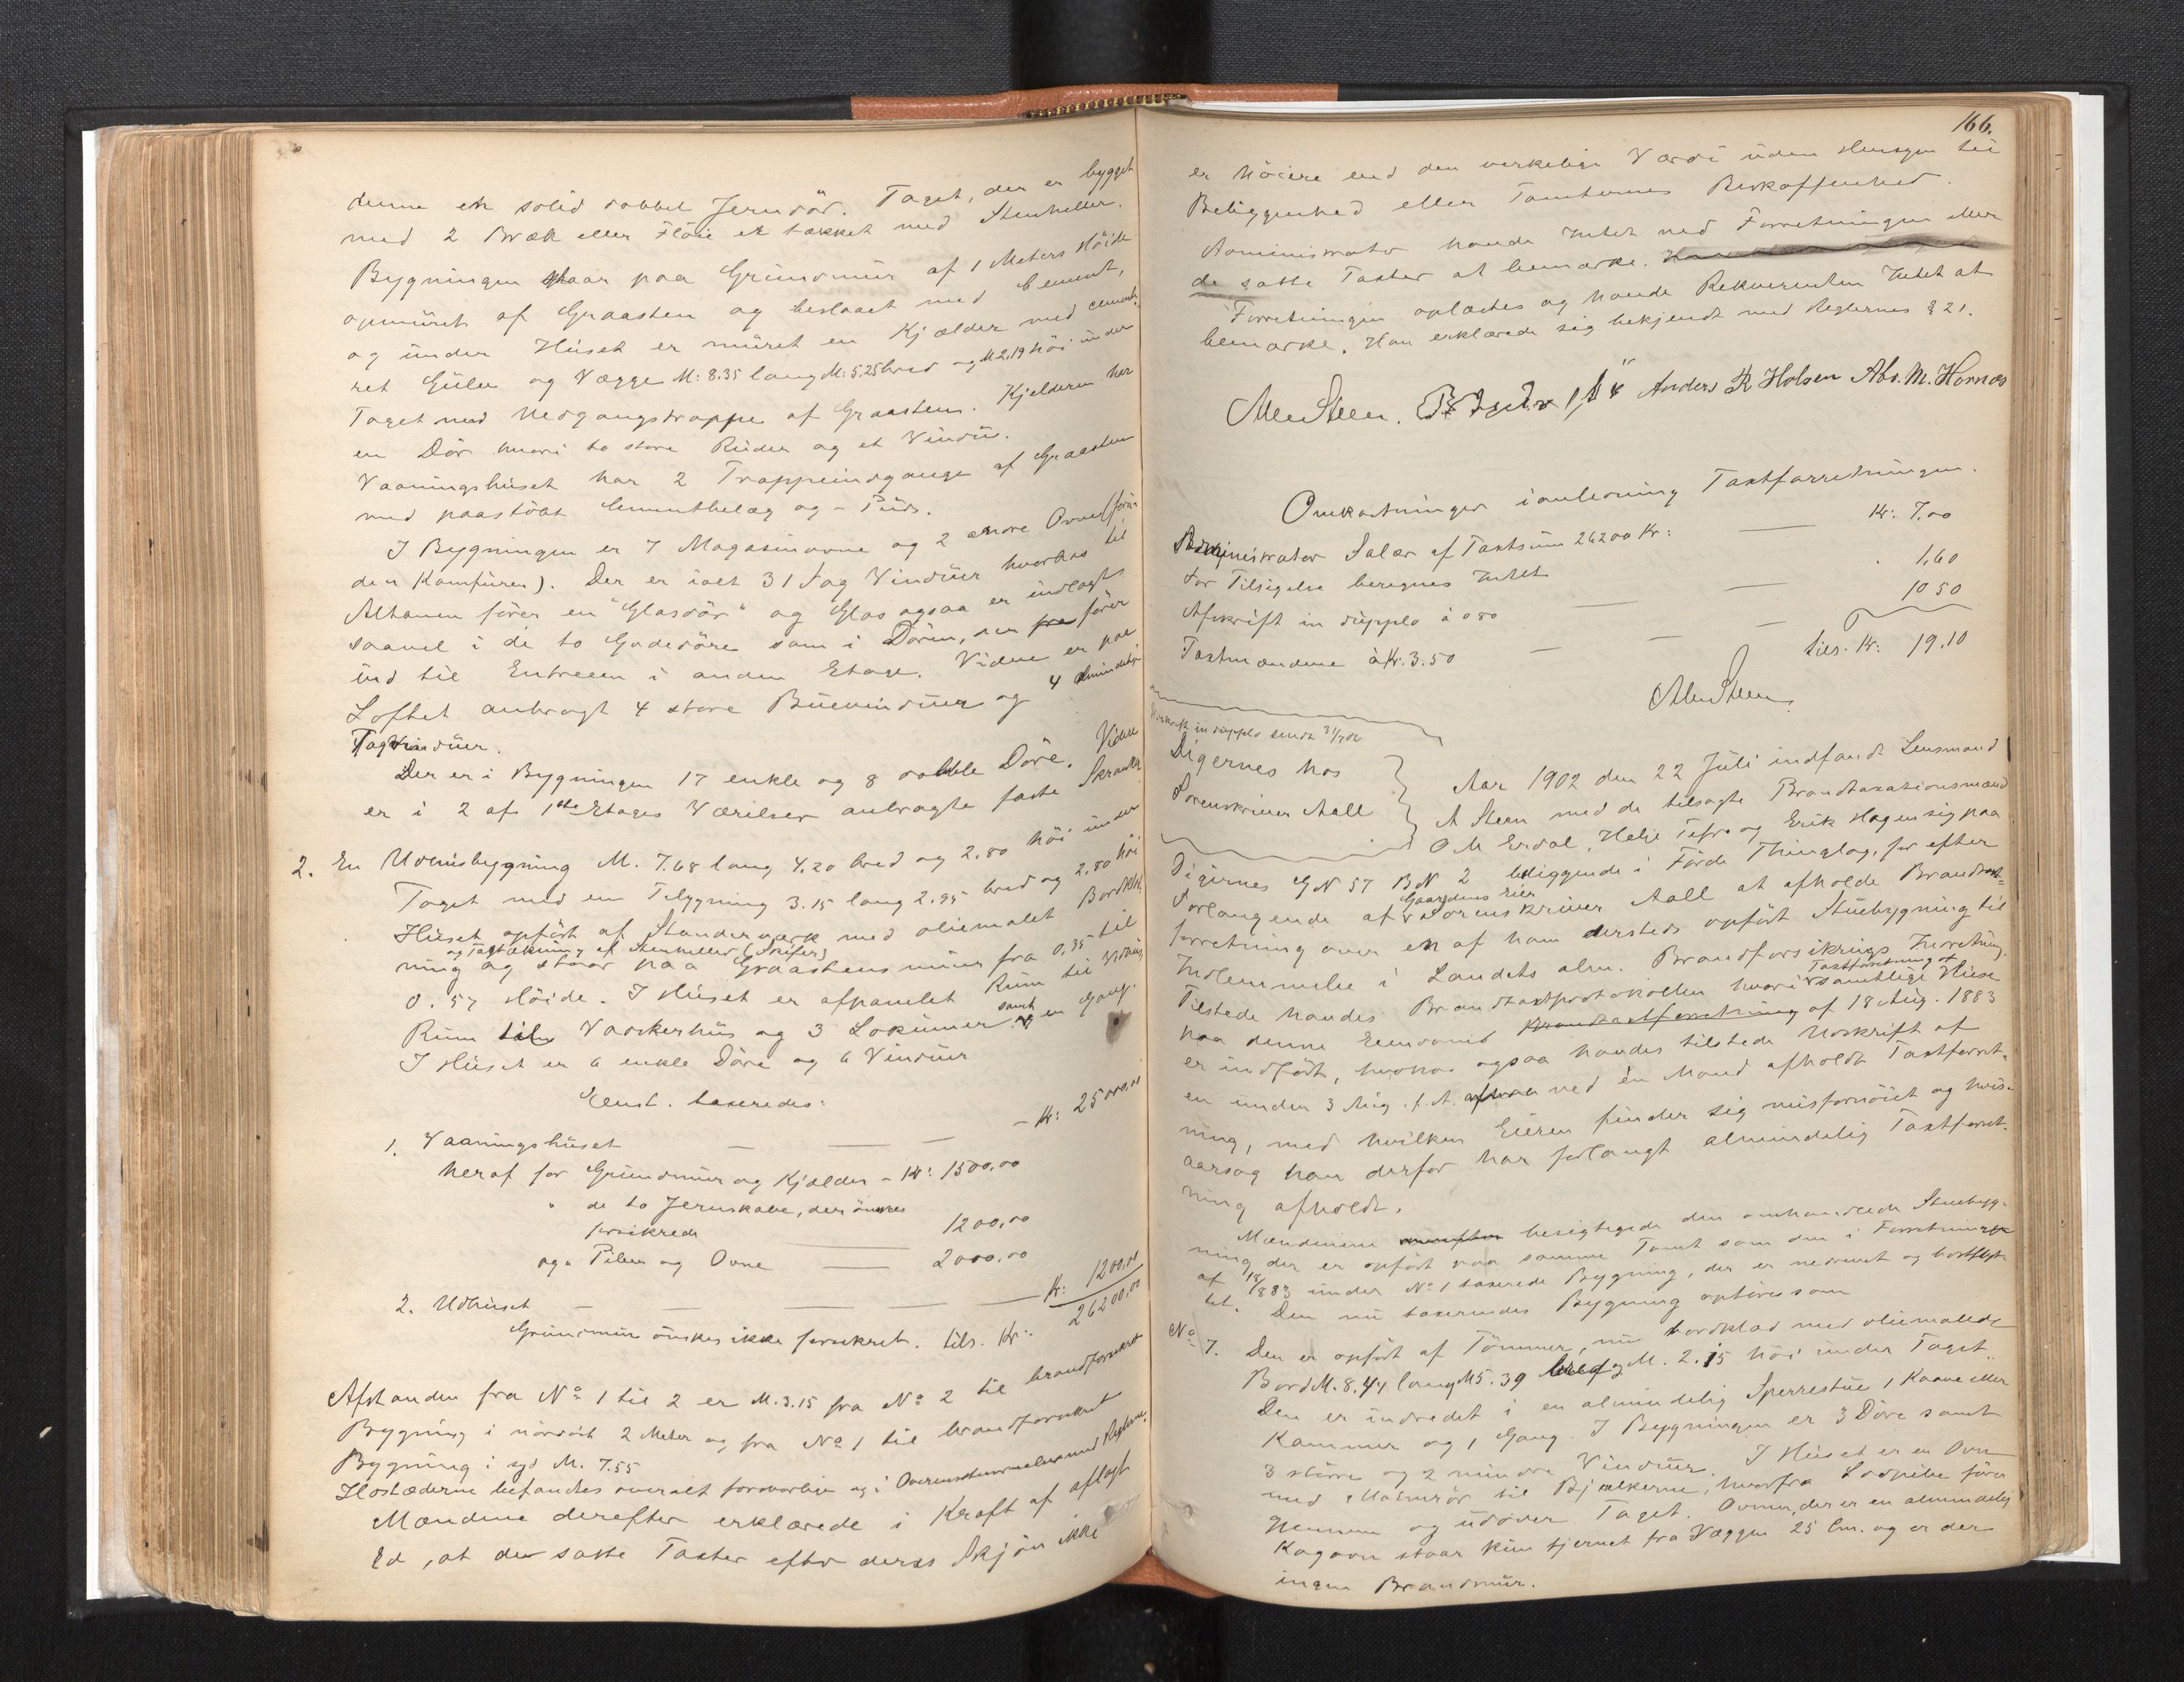 denne en solid dobbel Jerndör. Taget, der er bygget
med 2 Bræk eller Flöie er tækket med Stenheller.
Bygningen staar paa Grundmur af 1 Meters Höide
opmüret af Graasten og beslaaet med Cement,
og ünder Hüset er müret en Kjælder med cemente-
ret Gülv og Vægge M: 8.35 lang M: 5.25 bred og M 2.19 höi ünder
Taget med Nedgangstrappe af Graasten. Kjelderen har
en Dör hvori to store Rüder og et Vindü.
Vaaningshüset har 2 Trappeindgange af Graasten
med paastöbt Cementbelæg og - Püds.
I Bygningen er 7 Magasinovne og 2 andre Ovne (foru-
den Komfüren). Der er ialt 31 Fag Vindüer hvorhos til
Altanen förer en "Glasdör" og Glas ogsaa er indlagt
saavel i de to Gadedöre som i Dören, der fra förer
ind til Entreen i anden Etage. Videre er paa
Loftet anbragt 4 store Büevindüer og 4 almindelige
Tagvindüer.
Der er i Bygningen 17 enkle og 8 doble Döre. Videre
er i 2 af 1ste Etages Værelser anbragte faste Skranker
2. En Udhusbygning M. 7.68 lang 4.20 bred og 2.80 höi ünder
Taget med en Tilbygning 3.15 lang 2.95 bred og 2.80 höi
Hüset opfört af Standerværk med oliemalet Bordklæd-
og Tagtækning af Stenheller (Skifer)
ning og staar paa Graastensmüur fra 0.35 til
0.57 Höide. I Hüset er afpanelet Rüm til
Rüm til Vaskerhüs og 3 Lokümer samt en Gang.
I Hüset er 6 enkle Döre og 6 Vindüer
Eiend. taxeredes:
1. Vaaningshüset — — — - Kr: 25000,00
heraf for Gründmur og Kjælder - Kr: 1500,00
" de to Jernskabe, der önskes
forsikrede — 1200,00
og " Piber og Ovne — 2000,00
2. Udhüset — — — — Kr: 1200,00
Gründmur önskes ikke forsikret. tils. Kr: 26200,00
Afstanden fra No 1 til 2 er M. 3.15 fra No 2 til brandforsikret
Bygning i nordöst 2 Meter og fra No 1 til brandforsikret
Bygning i syd M. 7.55
Ildstæderne befandtes overalt forsvarlige og i Overensstemmelse med Reglerne.
Mændene derefter erklærede i Kraft af aflagt
Ed, at de satte Taxter efter deres Skjön ikke
166.
er höiere end den virkelige Værdi üden Hensyn til
Beliggenhed eller Tomternes Beskaffenhed.
Administrator havde Intet ved Forretningen eller
de satte Taxter at bemærke.
Forretningen oplæstes og havde Rekvirenten Intet at
bemærke. Han erklærede sig bekjendt med Reglernes § 21.
Anders R Holsen Abr. M. Hornæs
Omkostninger i anledning Taxtforretningen.
Administrator Salær af Taxtsum 26200 Kr: — Kr: 7.00
For Tilsigelse beregnes Intet
Afskrift in düpplo à 0 80 — — 1.60
Taxtmændene à Kr. 3.50 — — — 10 50
tils. Kr: 19.10
A Steen
Udskrift in düpplo sendt 31/7 02
Digernes hos
Sorenskriver Aall
Aar 1902 den 22 Juli indfandt Lensmand
A Steen med de tilsagte Brandtaxationsmænd
O M Erdal, Helje Tefre og Erik Hagen sig paa
Digernes G.N 57 B.N 2 beliggende i Förde Thinglag, for efter
Gaardens Eier
Forlangende af Sorenskriver Aall at afholde Brandtaxt-
forretning over en af ham dersteds opfört Stüebygning til
Indlemmelse i Landets alm. Brandforsikrings Indretning.
Taxtforretning af
Tilstede havdes Brandtaxtprotokollen hvori samtlige Hüse
paa denne Eiendomis Brandtaxtforretning af 18 Aug. 1883
er indfört, hvorhos ogsaa havdes tilstede Udskrift af
en ünder 3 Aug. f. A. ved én Mand afholdt Taxtforret-
ning, med hvilken Eieren finder sig misfornöiet og hvis-
aarsag han derfor har forlangt almindelig Taxtforret-
ning afholdt.
Mændenene besigtigede den omhandlede Stuebyg-
ning der er opfört paa samme Tomt som den i Forretningen
af 18/8 83 ünder No 1 taxerede Bygning, der er nedrevet og bortflyt-
tet. Den nü taxerendes Bygning opföres som
No 7. Den er opfört af Tömmer, nü bordklæd med oliemalede
Bord M. 8.44 lang M 5.39 bred og M. 2.15 höi ünder Taget.
Den er indredet i en almindelig Sperrestüe 1 Kaave eller
Kammer og 1 Gang. I Bygningen er 3 Döre samt
3 större og 2 mindre Vindüer. I Hüset er en Ovn
med Malmrör til Bjælkerne, hvorfra Lodpibe förer
gjennem og üdover Taget. Ovnen, der er en almindelig
Kogeovn staar kün fjernet fra Væggen 25 Cm. og er der
ingen Brandmür.